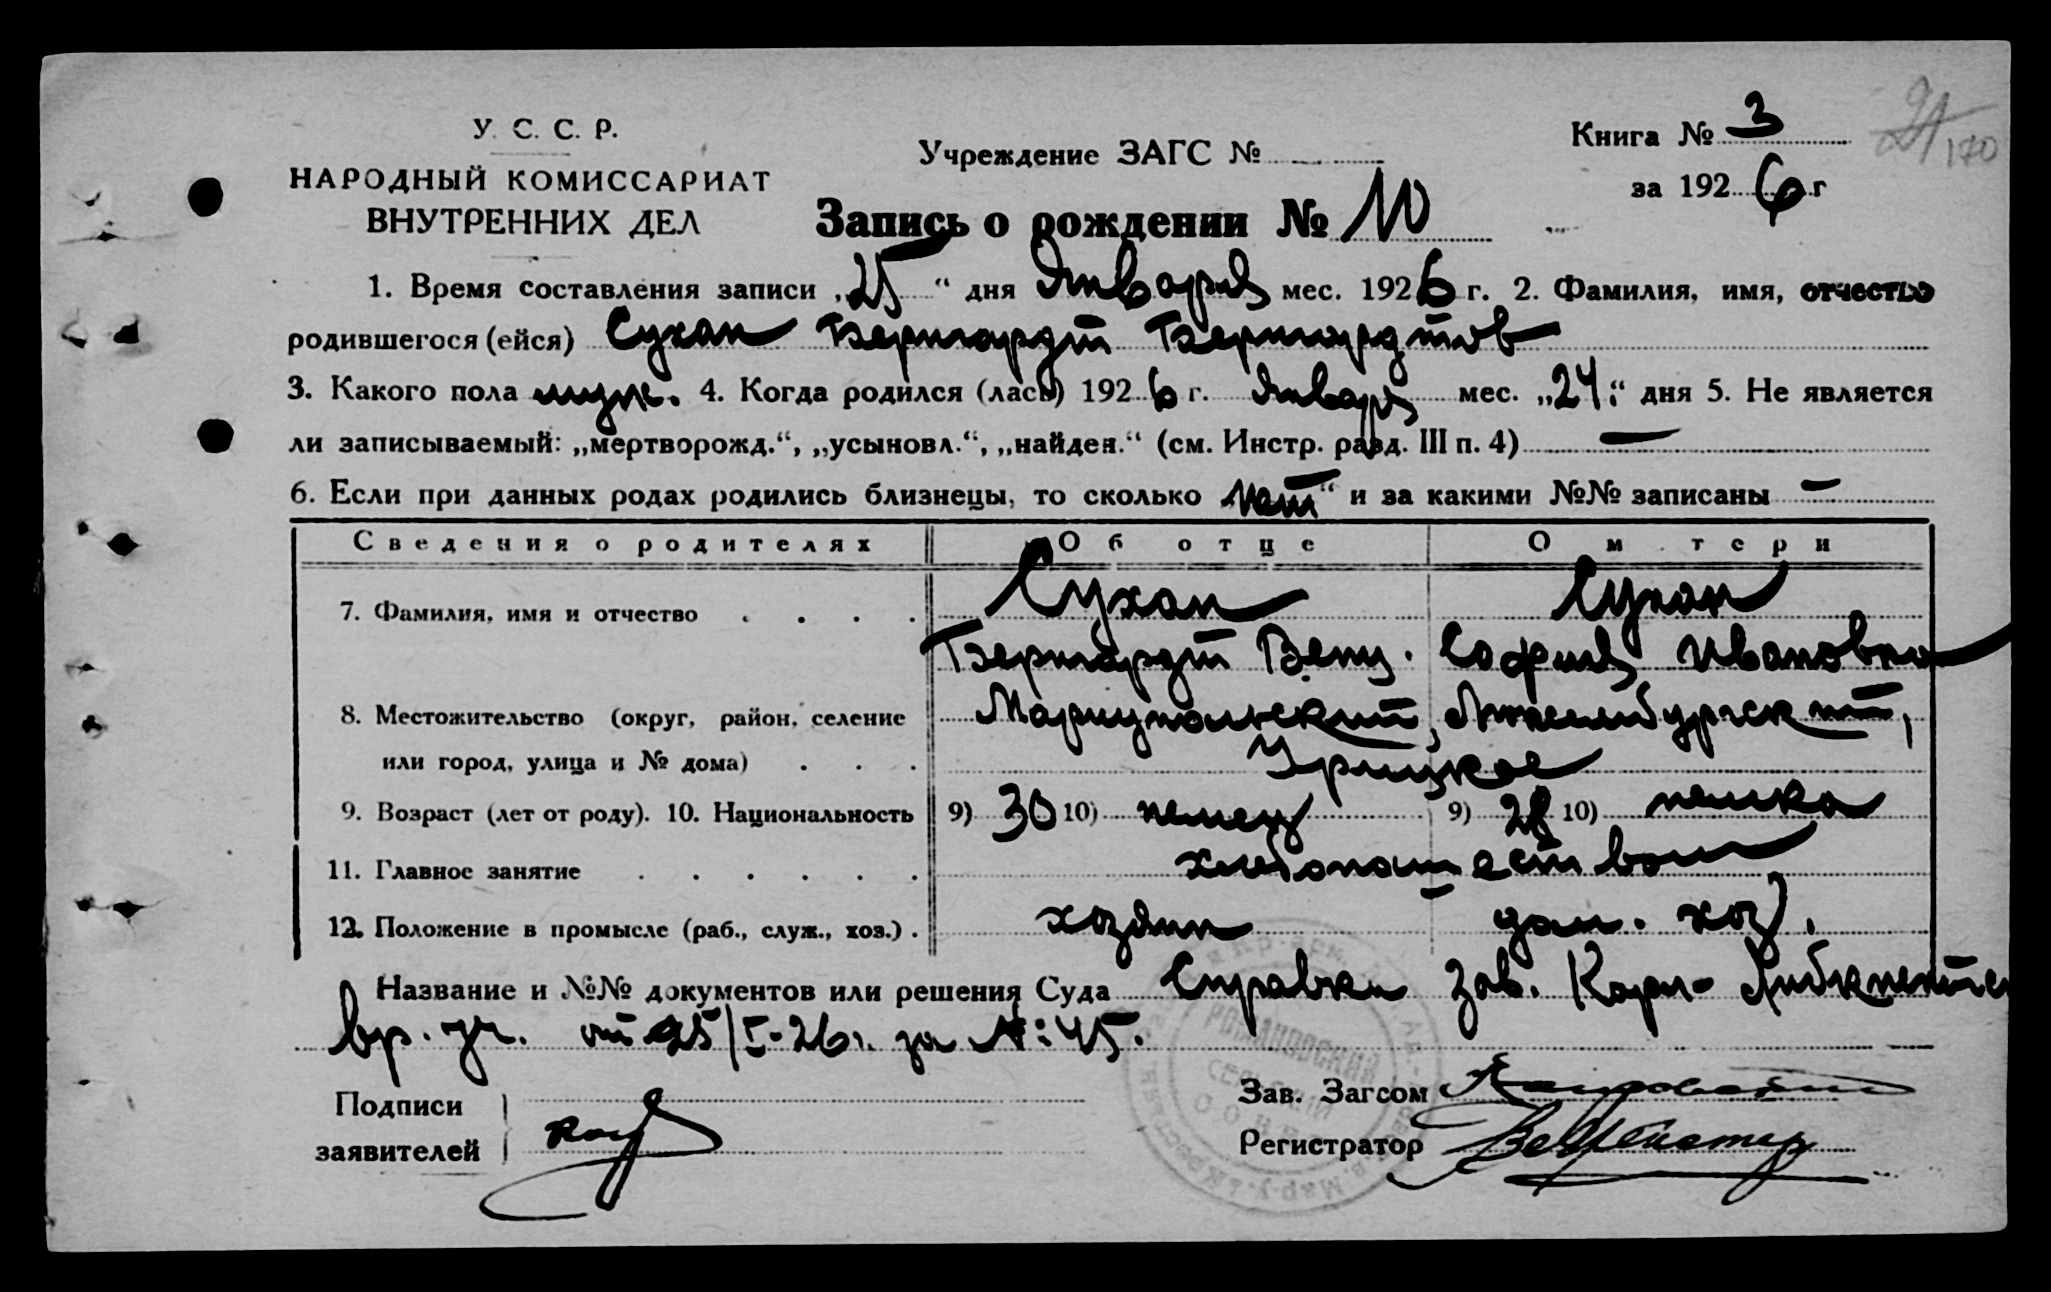 У. С. С. Р.
НАРОДНЫЙ КОМИССАРИАТ
ВНУТРЕННИХ ДЕЛ
Учреждение ЗАГС №
Книга № 3
за 1926 г
170
Запись о рождении № 10
1. Время составления записи „25“ дня Января мес. 1926 г. 2. Фамилия, имя, отчество
родившегося (ейся) Сухан Бернгардт Бернгардтов
3. Какого пола муж. 4. Когда родился (лась) 1926 г. Января мес. „24“ дня 5. Не является
ли записываемый: „мертворожд.“, „усыновл.“, „найден.“ (см. Инстр. разд. III п. 4) —
6. Если при данных родах родились близнецы, то сколько „нет“ и за какими №№ записаны —
Сведения о родителях Об отце О м тери
7. Фамилия, имя и отчество Сухан Сухан
Бернгардт Венц. София Ивановна
8. Местожительство (округ, район, селение Мариупольский, Люксембургский,
или город, улица и № дома) Урицкое
9. Возраст (лет от роду). 10. Национальность 9) 30 10) немец 9) 28 10) немка
11. Главное занятие хлебопашеством
12. Положение в промысле (раб., служ., хоз.) хозяин дом. хоз.
Название и №№ документов или решения Суда Справка Зав. Карл-Либкнехтск
вр. уч. от 25/I-26 г. за №: 45.
Подписи
заявителей
Зав. Загсом
Регистратор
РОМАНОВСКИЙ
СЕЛЬСКИЙ